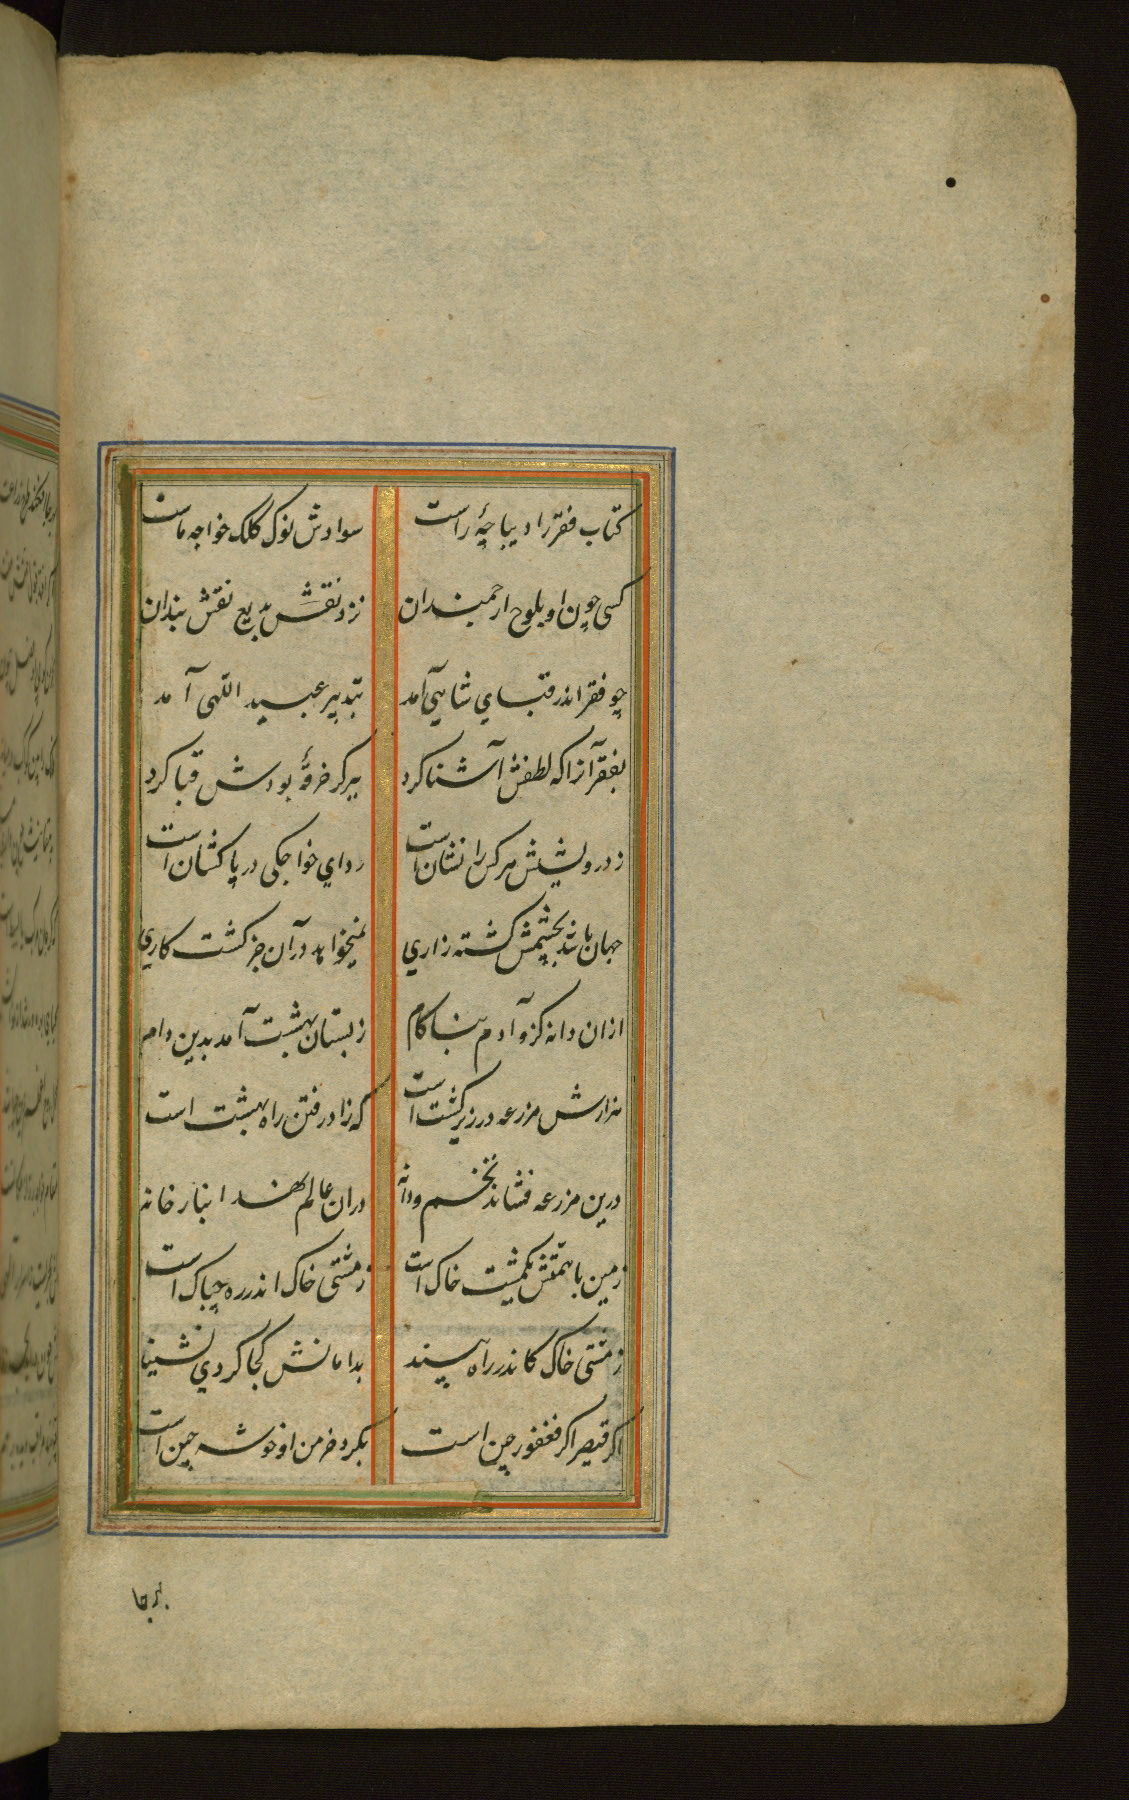 کتاب فقر را دیباچهٔ راست سوادش نوک کلک خواجه ماست
کسی چون او بلوح ارجمندان نزد نقش بدیع نقش بندان
چو فقر اندر قبای شاهی آمد بتدبیر عبید اللهی آمد
بفقر آنرا که لطفش آشنا کرد ببر گر خرقهٔ بودش قبا کرد
ز درویشیش هرکس را نشان است ردای خواجکی در پاکشان است
جهان باشد بچشمش کشته زاری نمیخواهد در آن جز کشت کاری
ازان دانه کزو آدم بناکام ز بستان بهشت آمد بدین دام
هزارش مزرعه در زیر کشت است که زاد رفتن راه بهشت است
درین مزرعه فشاند تخم و دانه دران عالم نهد انبار خانه
زمین با همتش یکمشت خاک است ز مشتی خاک اندر ره چه باک است
ز مشتی خاک کاندر راه بیند بدامانش کجا کردی نشیند
اگر قیصر اگر فغفور چین است بکرد خرمن او خوشه چین است